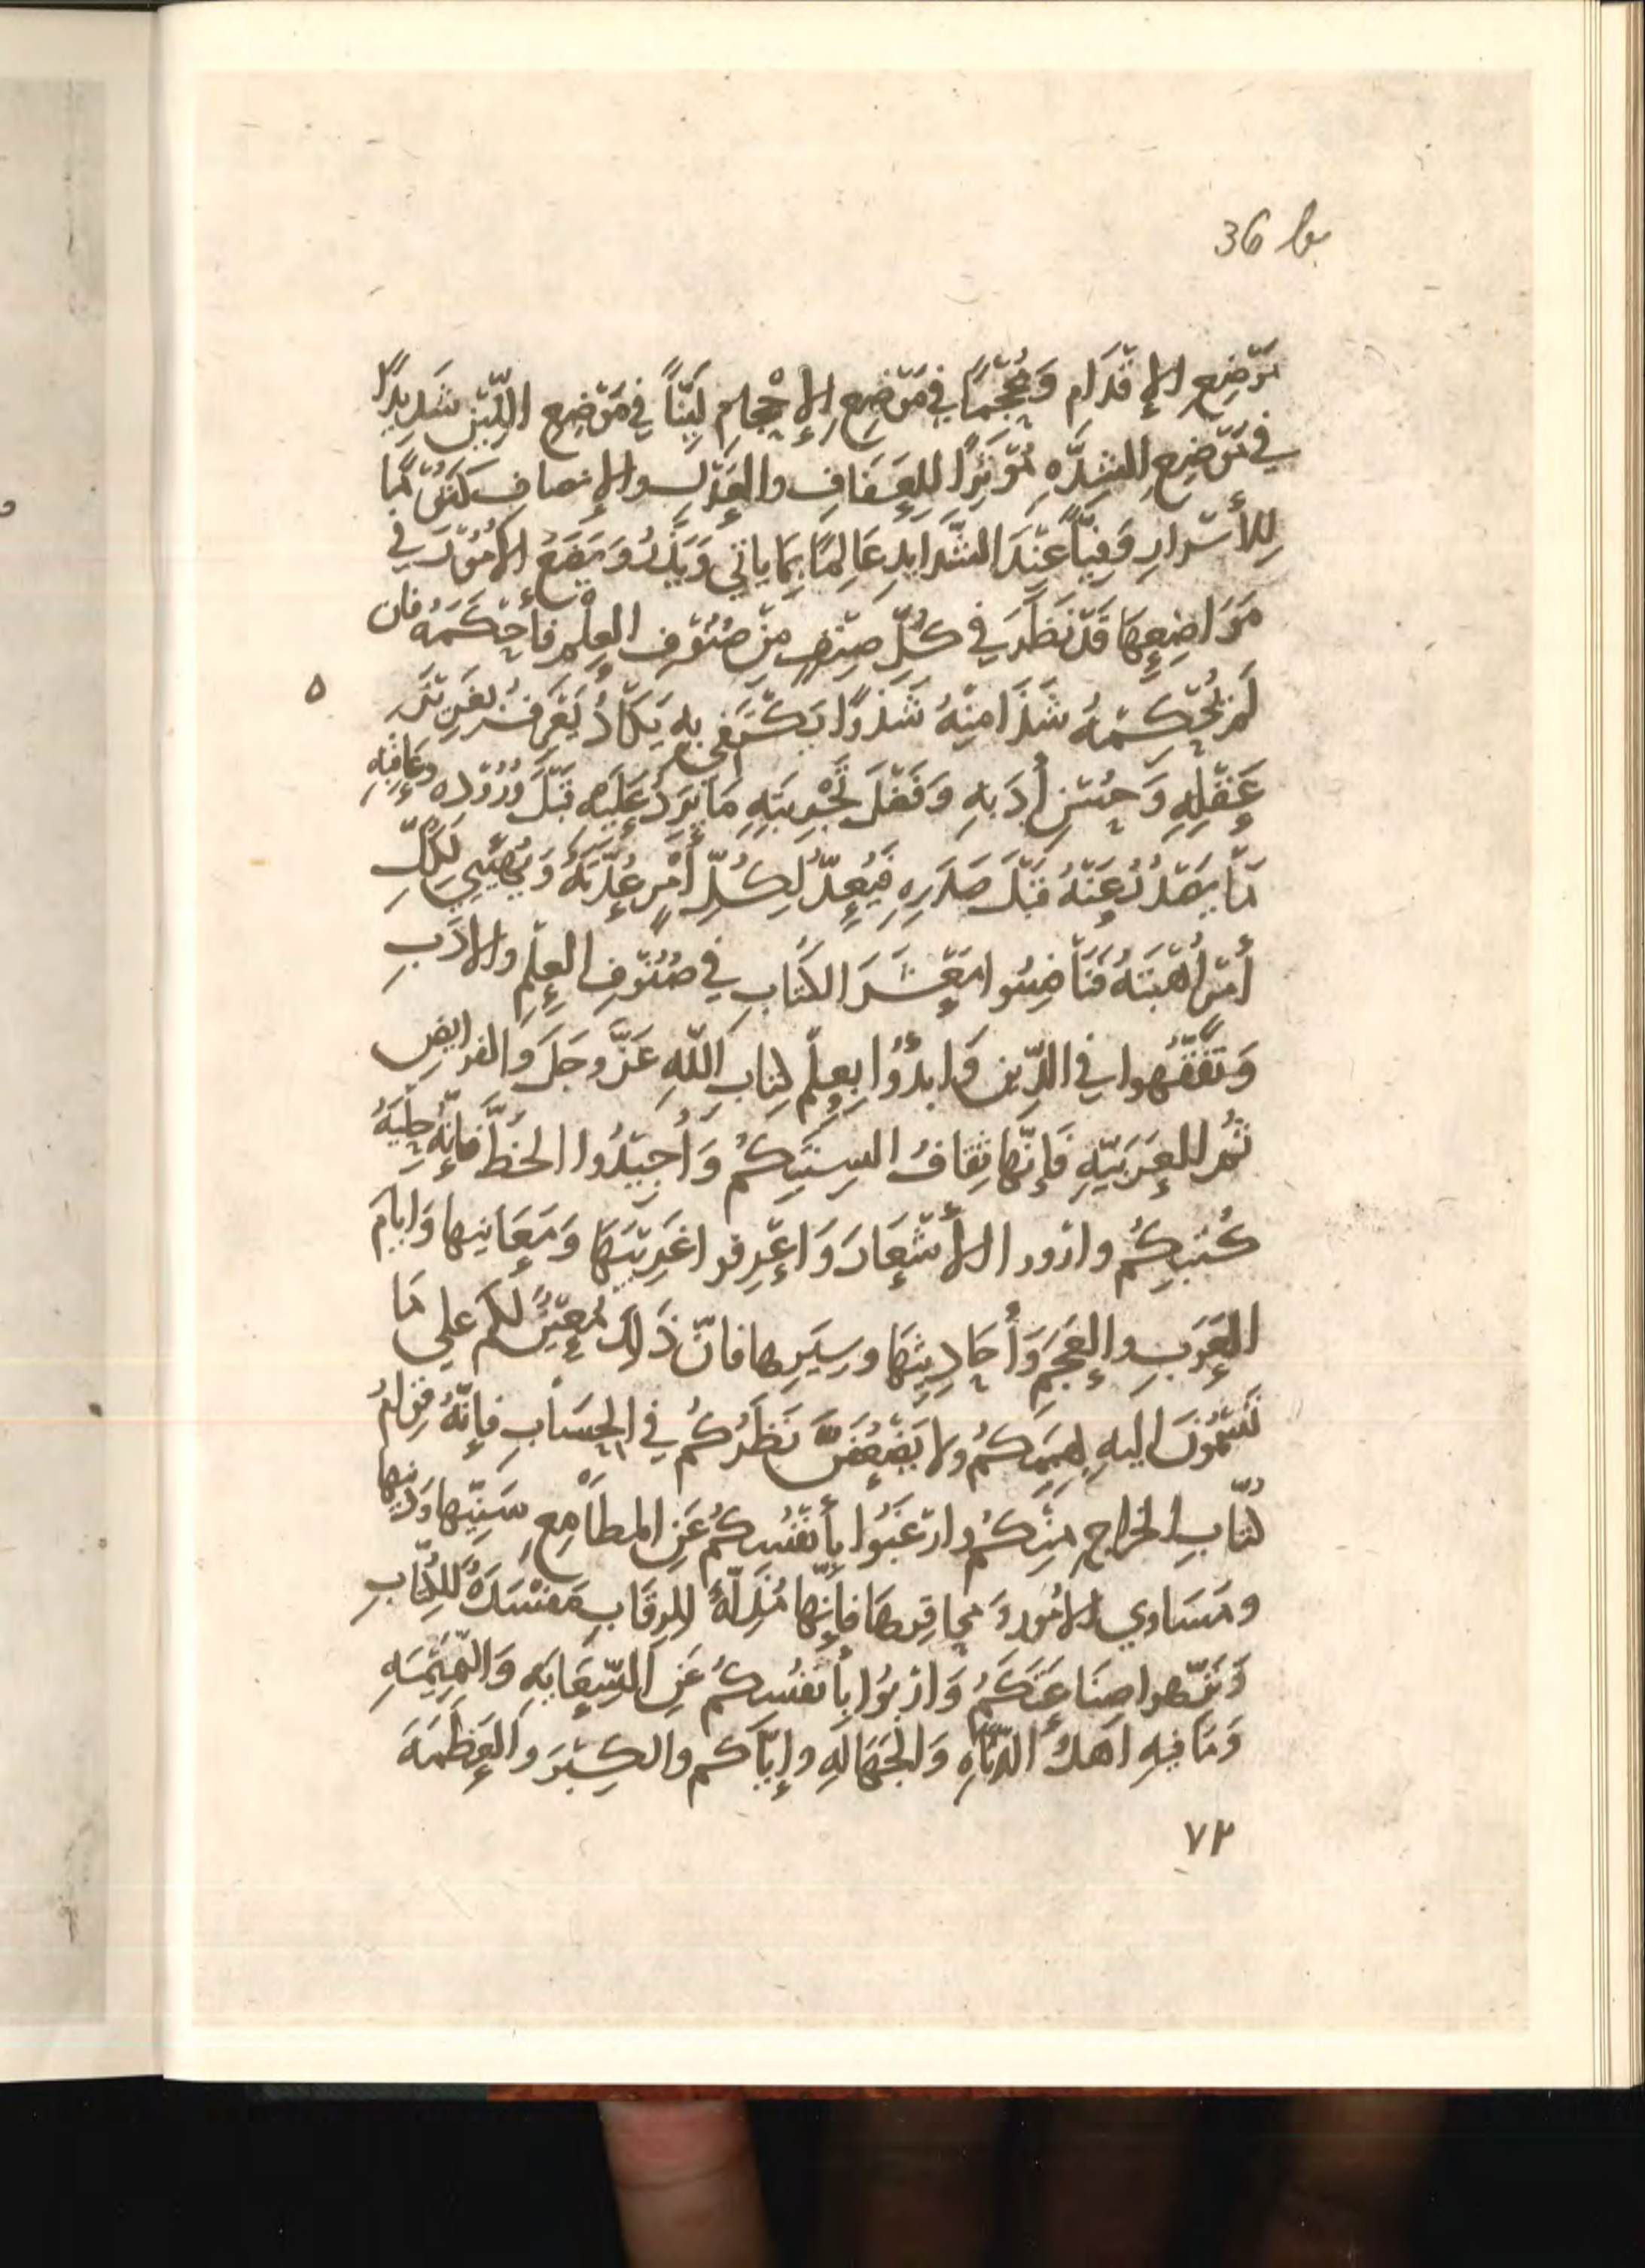 36 b
مَوْضِعِ الإِقْدَامِ وَمُحْجِمًا فِي مَوْضِعِ الإِحْجامِ لَيِّناً فِي مَوْضِعِ اللِّيْنِ شَدِيْدًا
فِي مَوْضِعِ الشِدَّهِ مُؤْثِرًا لِلعَفَافِ والعَدْلِ والإنصافِ كَتُوْمًا
لِلأَسْرارِ وَفِيًّا عِنْدَ الشَّدايدِ عَالِمًا بِمَا ياتي وَيَذَرُ وَيَضَعُ الأُمُوْرَ فِي
مَوَاضِعِهَا قَدْ نَظَرَ فِي كُلِّ صِنْفٍ مِنْ صُنُوْفِ العِلْمِ فأَحْكَمَهُ فان
لَمْ يُحْكِمْهُ شَذَا مِنْهُ شَذْوًا يَكْتَفي بِهِ يَكَادُ يَعْرِفُ بِغَرِيْزَهِ
عَقْلِهِ وَحُسْنِ أَدَبهِ وَفَضْلِ تَجْرِبَتِهِ مَا يَرِدُ عَلَيْهِ قَبْلَ وُرُوْدِهِ وعَاقِبَهِ
مَا يَصْدُرُ عَنْهُ قَبْلَ صَدَرِهِ فَيُعِدُّ لِكُلِّ أَمْرٍ عُدَّتَهُ وَيُهَيِّي لِكُلِّ
أمْرٍ أُهْبَتَهُ فَنَافِسُوا مَعْشَرَ الكُتّابِ فِي صُنُوْفِ العِلْمِ والادَبِ
وَتَفَقَّهُوا فِي الدِّينِ وَابدَؤُا بِعِلْمِ كِتابِ اللّهِ عَزَّ وجَلَ وَالفرايضِ
ثُمَّ العَرَبِيّهِ فَإِنَّها ثِقَافُ السِنَتِكُمْ وَأَجِيْدُوا الخَطَّ فَإِنَّهُ حِلْيَهُ
كُتُبِكُمْ وارووا الأَشْعَارَ وَاعْرِفوا غَرِيْبَهَا وَمَعَانِيها وَايامَ
العَرَبِ والعَجَمِ وَأَحَادِيثَهَا وسِيَرِها فانّ ذَلِكَ مُعِيْنٌ لكم علي مَا
تَسْمُوْنَ اليهِ بِهِمَمِكُمْ ولا يَضْعُفَنَّ نَظَرُكُمْ فِي الحِسَابِ فإِنَّهُ قِوَامُ
كُتّابِ الخراجِ مِنْكُمْ وارْغَبُوا بِأَنْفُسِكُمْ عَنِ المطَامِعِ سَنِيِّها وَدَنيِها
ومَسَاوِي الأُمورِ وَمحاقِرهَا فَإِنَّها مُذِلَّهٌ لِلرِقَابِ مَفْسَدَهٌ لِلكُتّابِ
وَنَزِّهوا صِنَاعَتَكُمْ وَارْبَؤُا بأنفُسِكُمْ عَنِ السِّعَايَهِ وَالنَّمِيْمَهِ
وَمَا فِيهِ اهَلُ الدَّنَاهِ وَالجَهَالَهِ وإِيّاكم والكِبْرَ والعَظَمَهَ
٥
٧٢